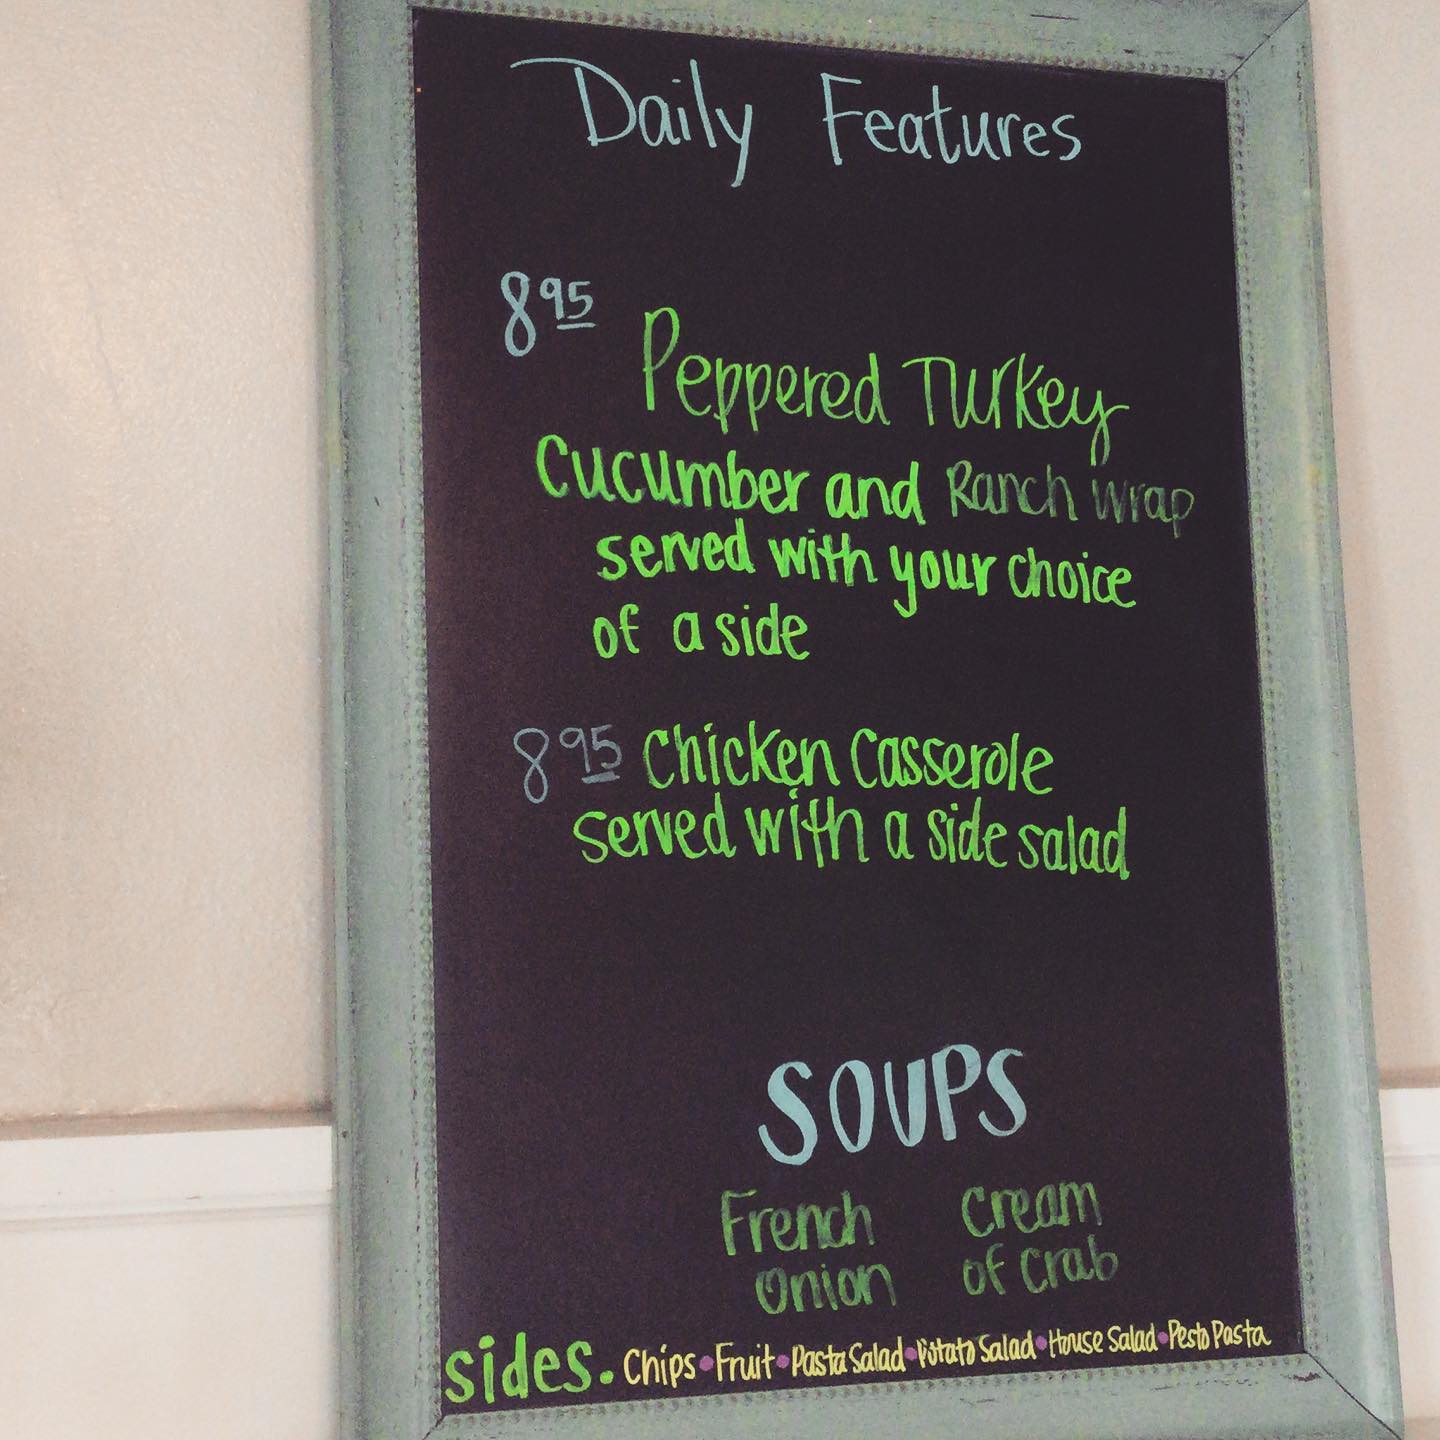 Daily Features
8 95
Peppered Turkey
Cucumber and Ranch Wrap
served with your choice
of a side
8 95 Chicken Casserole
served with a side salad
SOUPS
French Cream
Onion of Crab
sides. Chips • Fruit • Pasta Salad • Potato Salad • House Salad • Pesto Pasta